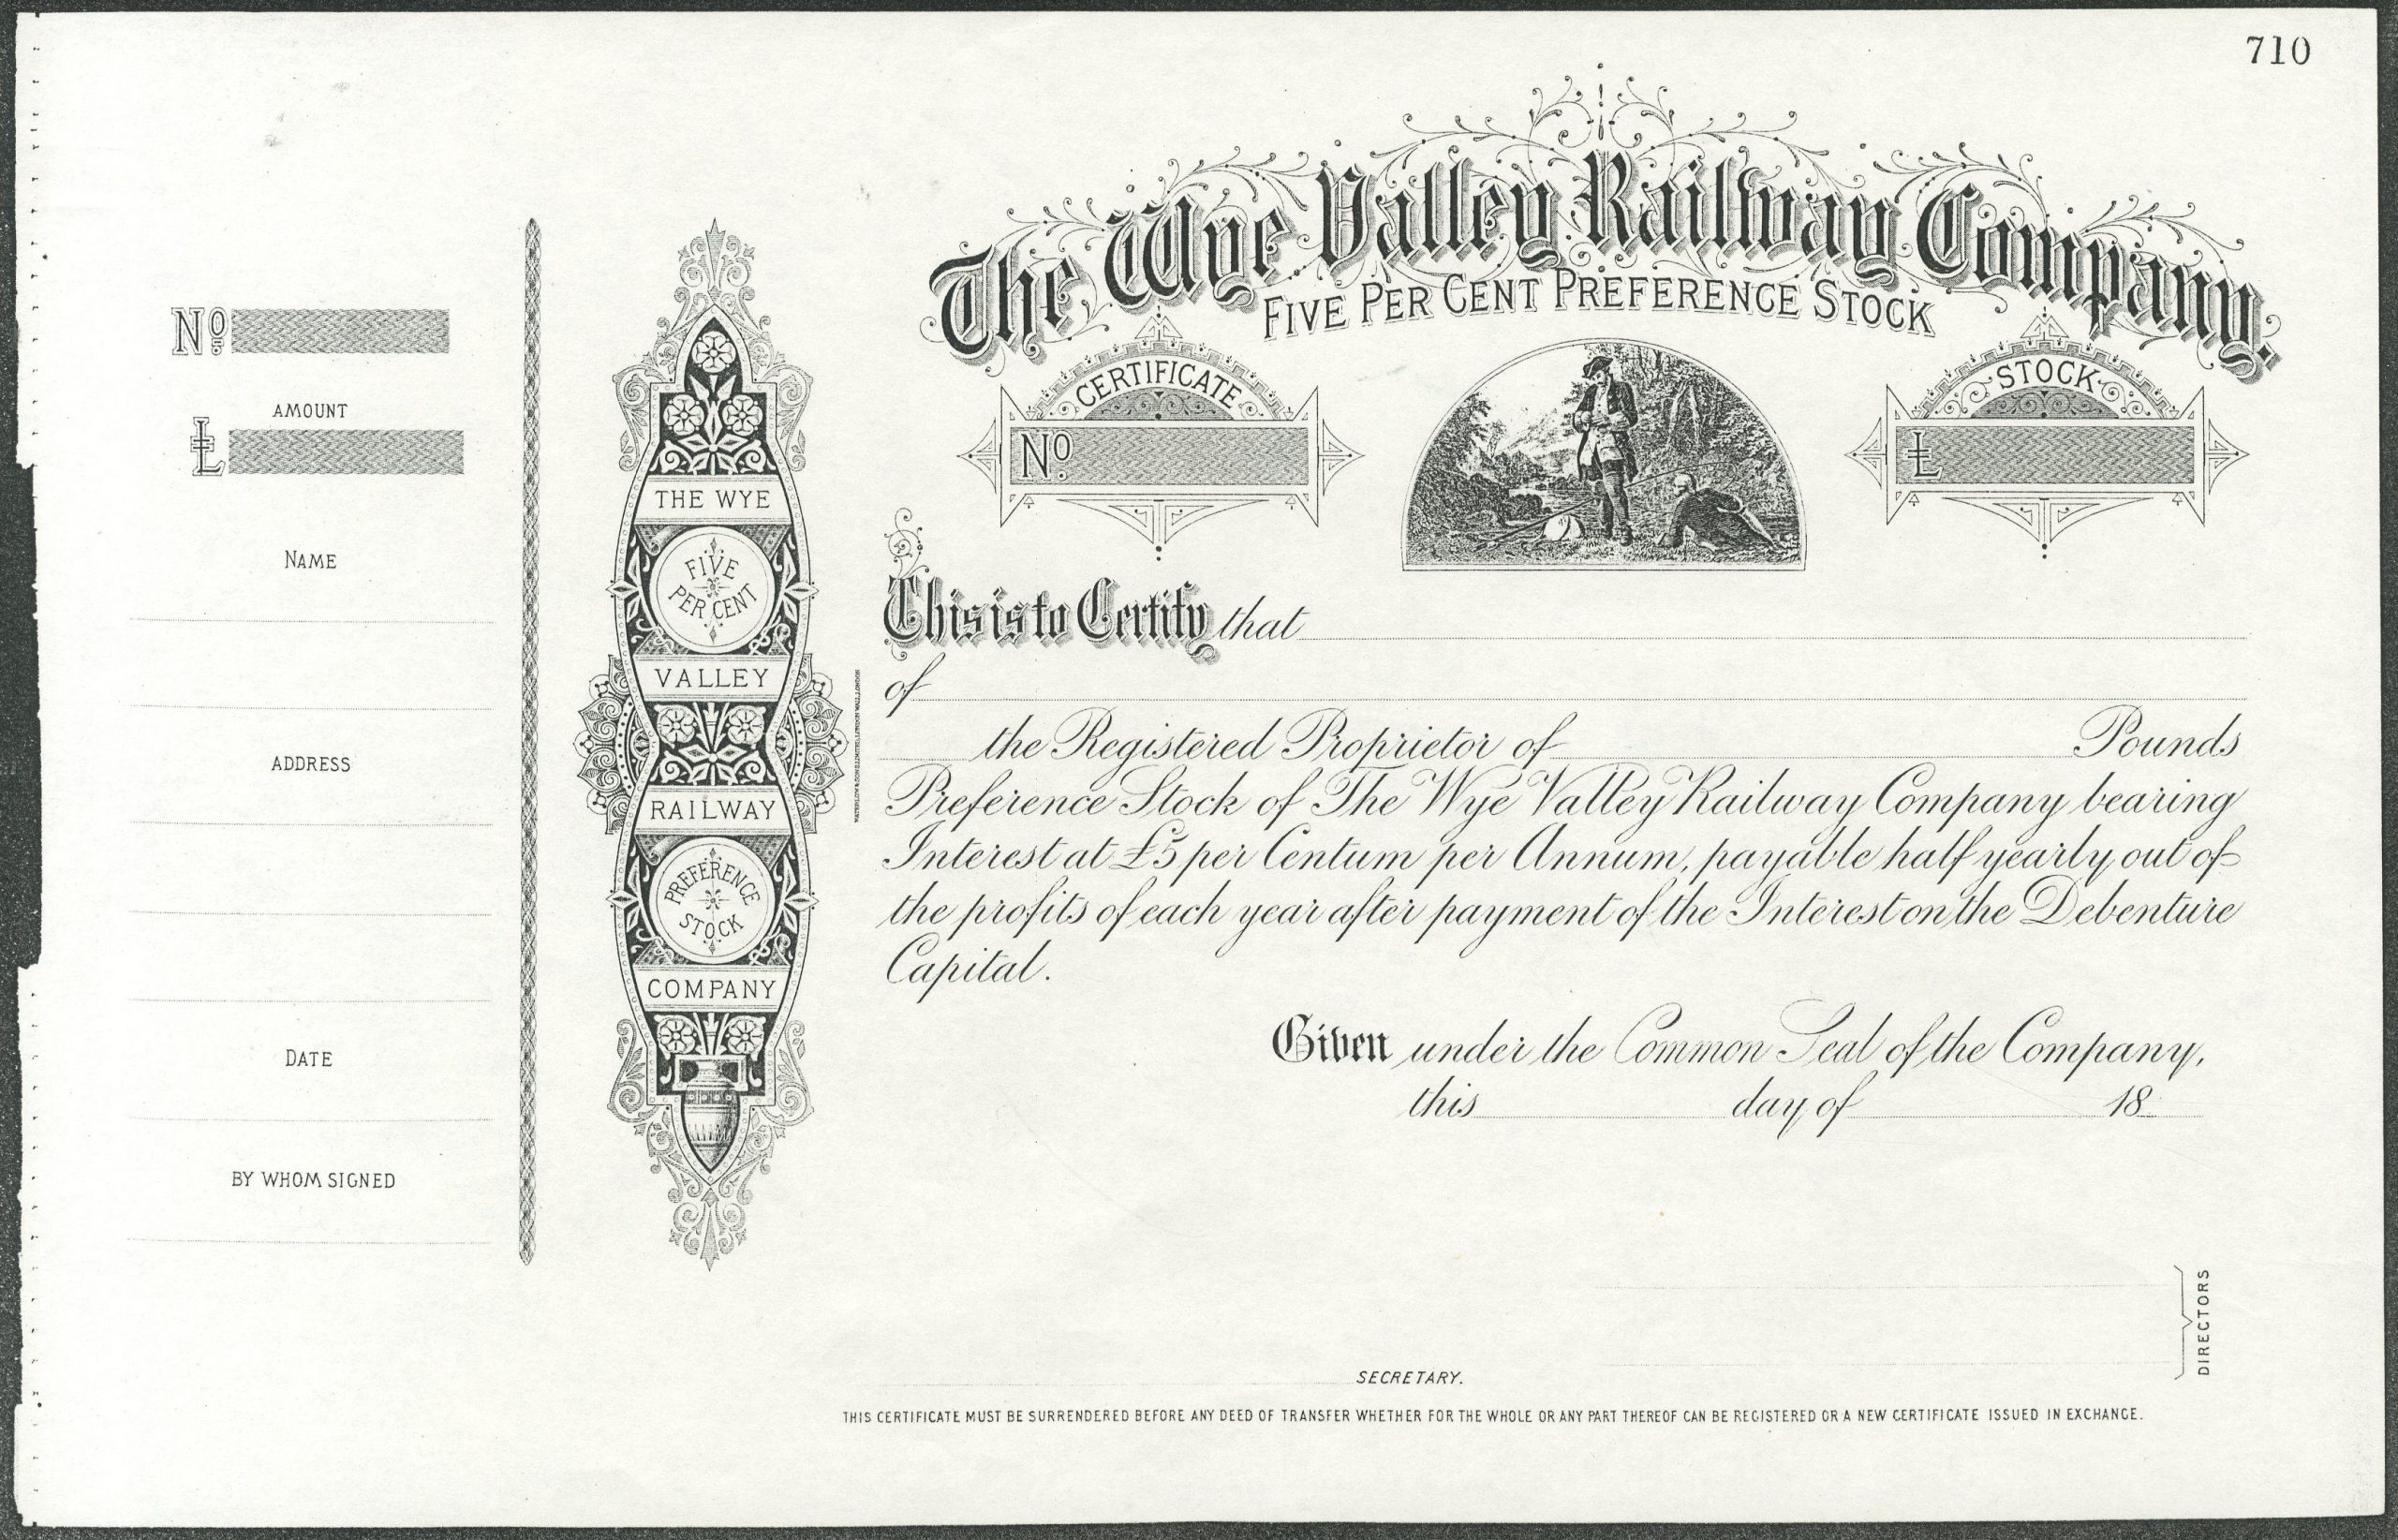 710
The Wye Valley Railway Company.
FIVE PER CENT PREFERENCE STOCK
No
AMOUNT
£
NAME
ADDRESS
DATE
BY WHOM SIGNED
THE WYE
FIVE
PER CENT
VALLEY
RAILWAY
PREFERENCE
STOCK
COMPANY
WATERLOW & SONS LIMITED, LONDON WALL, LONDON
CERTIFICATE
No
STOCK
£
This is to Certify that
of
the Registered Proprietor of Pounds
Preference Stock of The Wye Valley Railway Company bearing
Interest at £5 per Centum per Annum, payable half yearly out of
the profits of each year after payment of the Interest on the Debenture
Capital.
Given under the Common Seal of the Company,
this day of 18
DIRECTORS
SECRETARY.
THIS CERTIFICATE MUST BE SURRENDERED BEFORE ANY DEED OF TRANSFER WHETHER FOR THE WHOLE OR ANY PART THEREOF CAN BE REGISTERED OR A NEW CERTIFICATE ISSUED IN EXCHANGE.